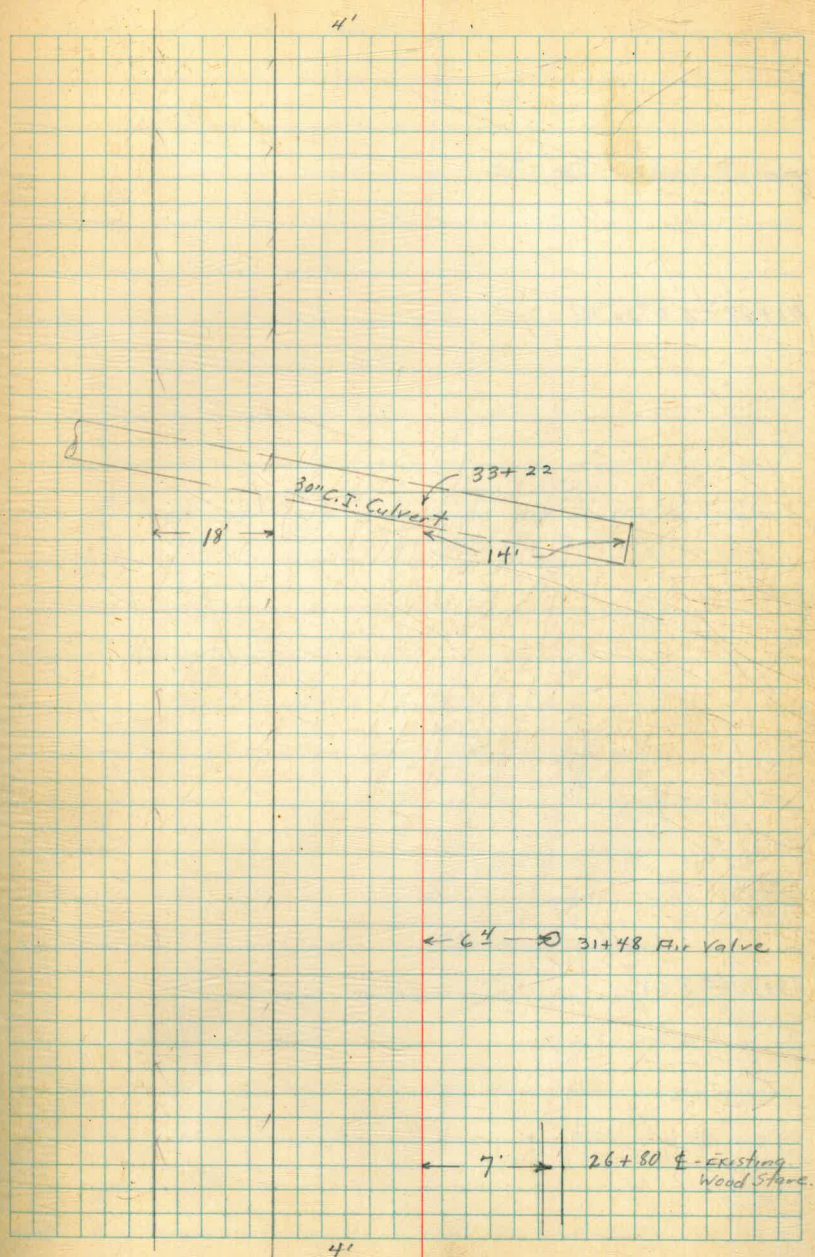 4'
33+22
30" C.I. Culvert
18'
14'
6⁴ 31+48 Air Valve
7' 26+80 ℄ - Existing
Wood Stave.
4'